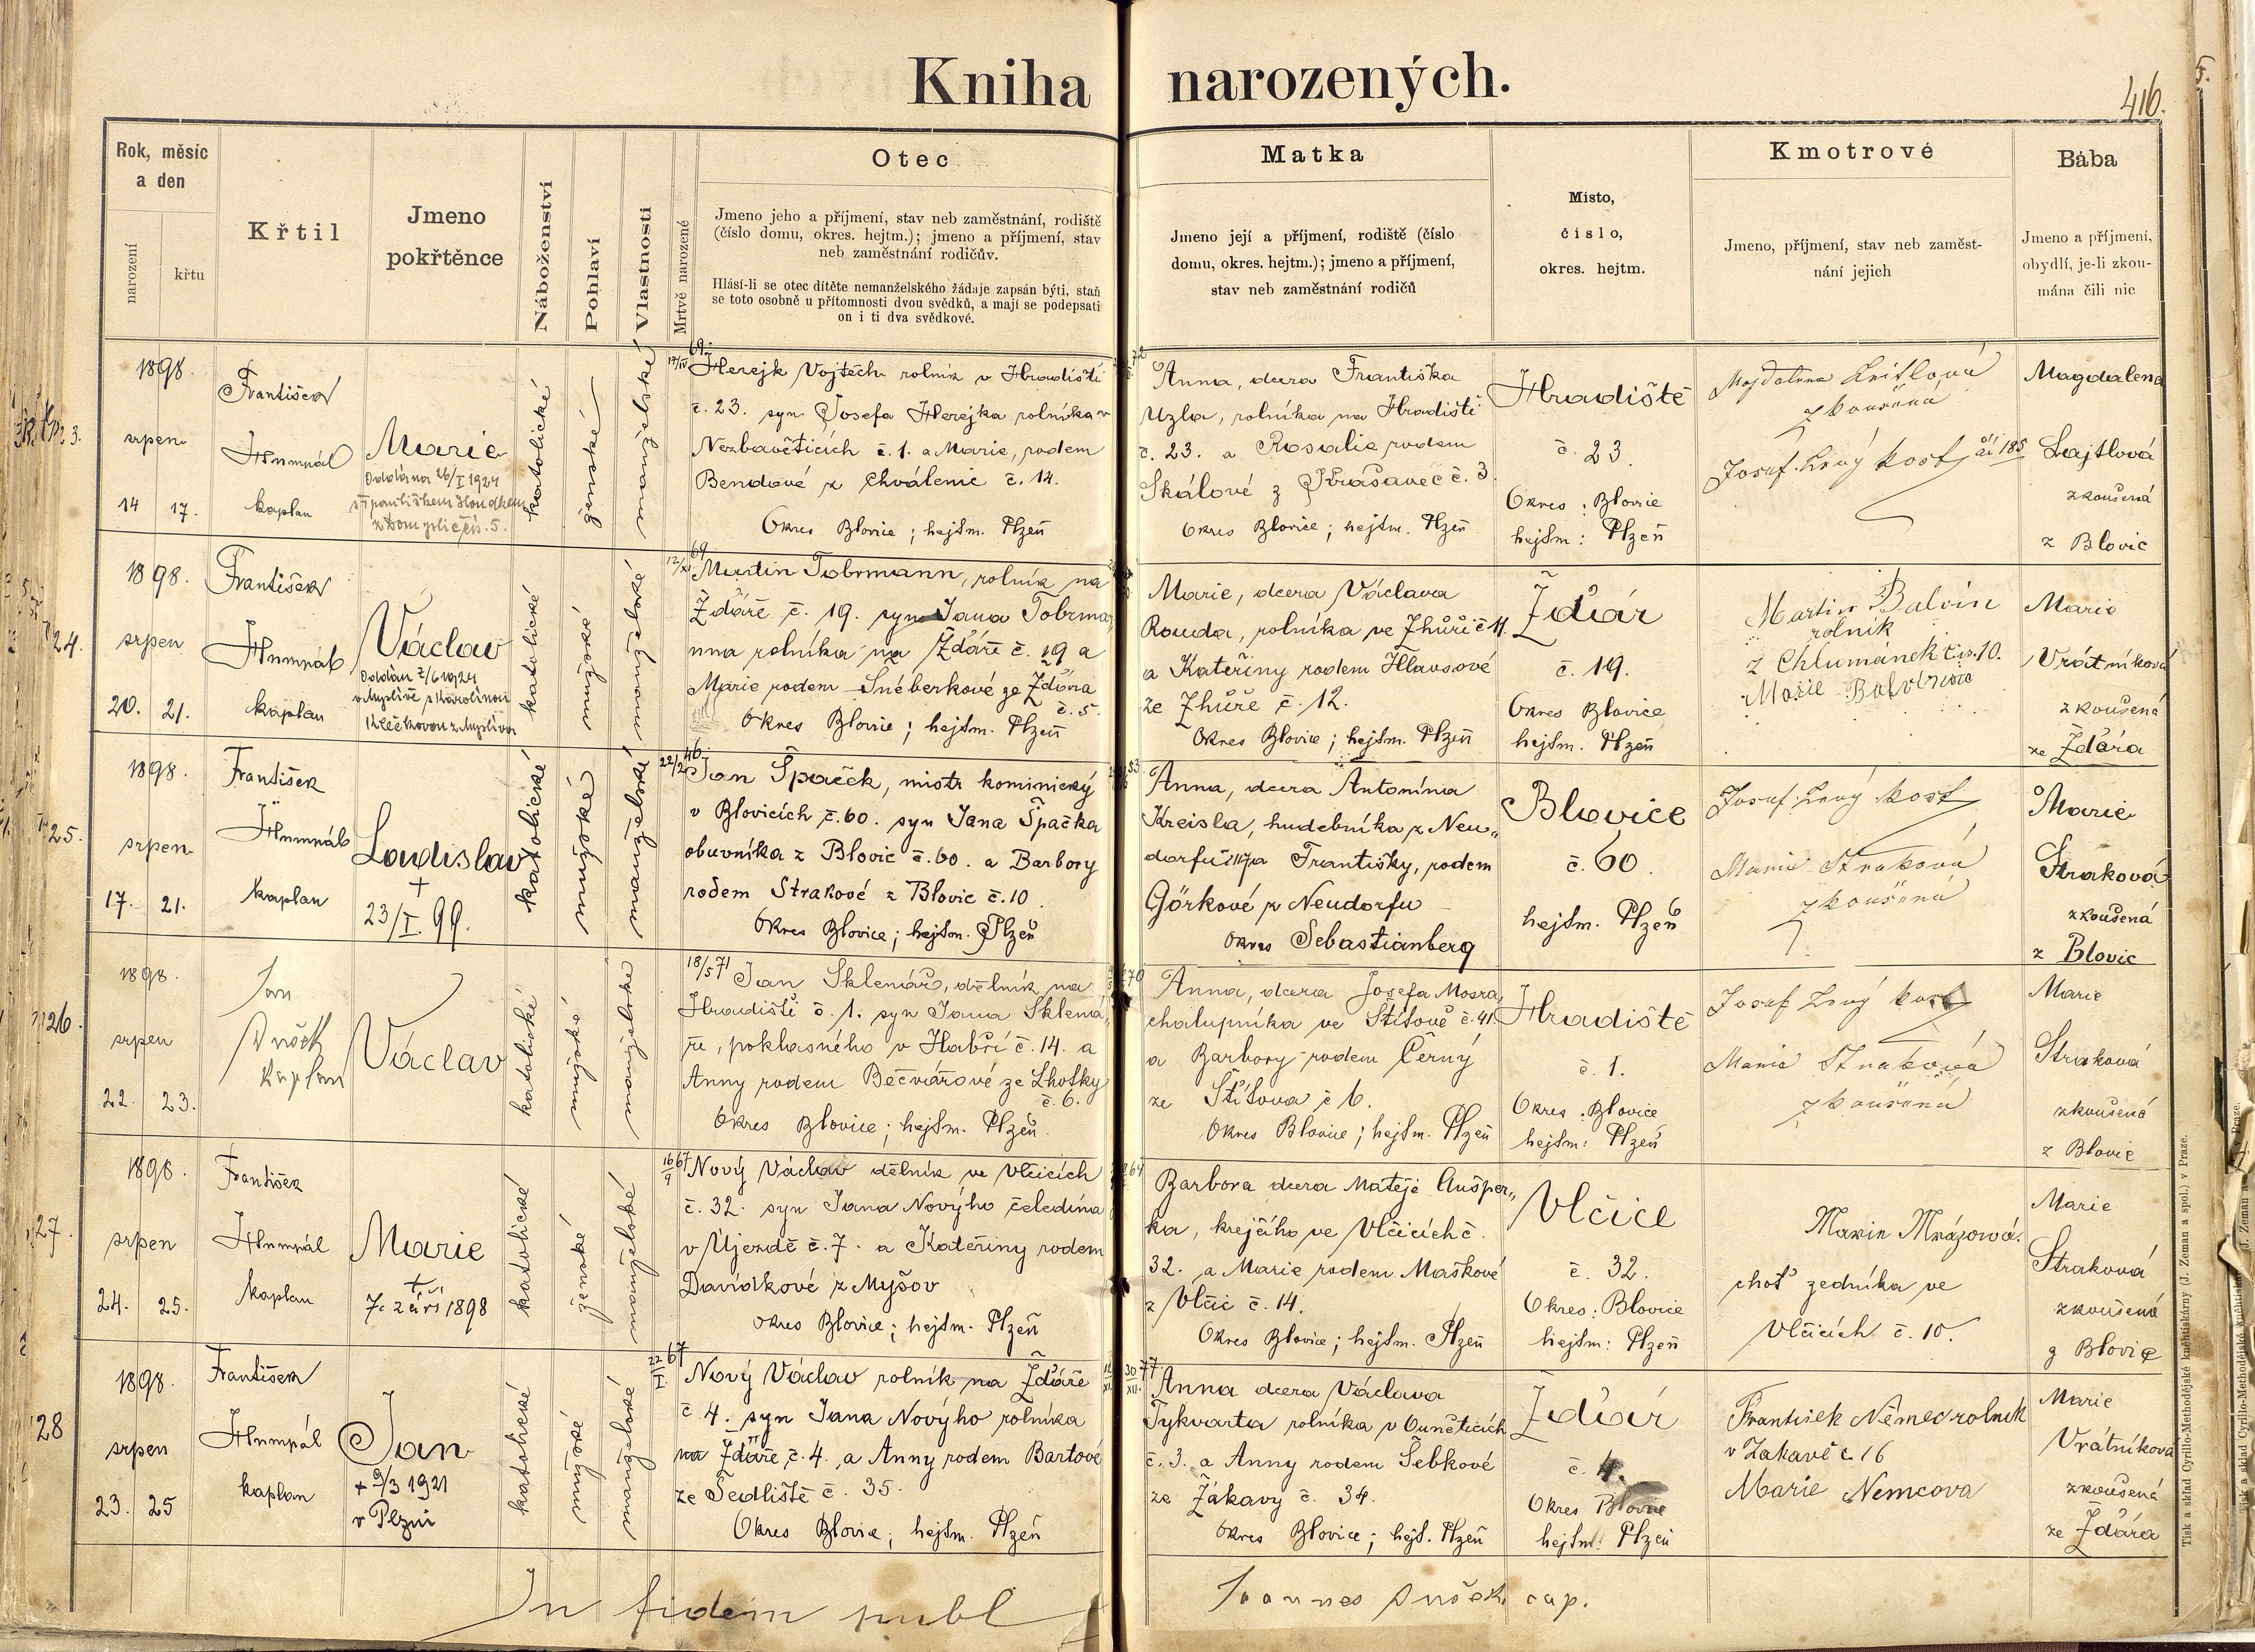 Kniha narozených.
416.
Rok, měsíc
a den
narození
křtu
Křtil
Jmeno
pokřtěnce
Náboženství
Pohlaví
Vlastnosti
Mrtvě narozené
Otec
Jmeno jeho a příjmení, stav neb zaměstnání, rodiště
(číslo domu, okres. hejtm.); jmeno a příjmení, stav
neb zaměstnání rodičův.
Hlásí-li se otec dítěte nemanželského žádaje zapsán býti, staň
se toto osobně u přítomnosti dvou svědků, a mají se podepsati
on i ti dva svědkové.
Matka
Jmeno její a příjmení, rodiště (číslo
domu, okres. hejtm.); jmeno a příjmení,
stav neb zaměstnání rodičů
Místo,
číslo,
okres. hejtm.
Kmotrové
Jmeno, příjmení, stav neb zaměst-
nání jejich
Bába
Jmeno a příjmení,
obydlí, je-li zkou-
mána čili nic
23.
1898.
srpen
14 17.
František
Humpál
kaplan
Marie
Oddána 26/I 1924
s Františkem Houdkem
z Domyslic čís. 5.
katolické
ženské
manželské
69.
Herejk Vojtěch rolník v Hradišti
č. 23. syn Josefa Herejka rolníka v
Nezbavěticích č. 1. a Marie, rodem
Bendové z Chválenic č. 14.
Okres Blovice; hejtm. Plzeň
72
Anna, dcera Františka
Uzla, rolníka na Hradišti
č. 23. a Rosalie rodem
Skálové z Prašavec č. 3.
Okres Blovice; hejtm. Plzeň
Hradiště
č. 23.
Okres: Blovice
hejtm: Plzeň
zkoušená
Josef Lvý kost
Magdalena
Lajtlová
zkoušená
z Blovic
24.
1898.
srpen
20. 21.
František
Humpál
kaplan
Václav
Oddán 2/6 1924
v Myslívě s Karolinou
Klečkovou z Myslíva
katolické
mužské
manželské
12/XI 69.
Martin Tobrmann, rolník na
Žďáře č. 19. syn Jana Tobrma
nna rolníka na Žďáře č. 19 a
Marie rodem Šnéberkové ze Žďára
č. 5.
Okres Blovice; hejtm. Plzeň
Marie, dcera Václava
Rouda, rolníka ve Zhůři č 11.
a Kateřiny rodem Hlavsové
ze Zhůře č. 12.
Okres Blovice; hejtm. Plzeň
Žďár
č. 19.
Okres Blovice
hejtm. Plzeň
Martin Balvín
rolník
z Chlumánek čís. 10.
Marie Balvínová
Marie
Vrátníková
zkoušená
ze Žďára
25.
1898.
srpen
17. 21.
František
Humpál
kaplan
Ladislav
+
23/I. 99.
katolické
mužské
manželské
22/2 46.
Jan Špaček, mistr kominický
v Blovicích č. 60. syn Jana Špačka
obuvníka z Blovic č. 60. a Barbory
rodem Strakové z Blovic č. 10.
Okres Blovice; hejtm. Plzeň
53
Anna, dcera Antonína
Kreisla, hudebníka z Neu„
dorfu č 117 a Františky, rodem
Görkové z Neudorfu
okres Sebastianberg
Blovice
č. 60.
hejtm. Plzeň
Josef Lvý kost
Marie Straková
zkoušená
Marie
Straková
zkoušená
z Blovic
26.
1898.
srpen
22. 23.
Jan
Dušek
kaplan
Václav
katolické
mužské
manželské
18/5 71
Jan Sklenář, dělník na
Hradišti č. 1. syn Jana Sklená„
ře, poklasného v Habří č. 14. a
Anny rodem Bečvářové ze Lhotky
č. 6.
Okres Blovice; hejtm. Plzeň
70
Anna, dcera Josefa Mosra,
chalupníka ve Štítově č. 41.
a Barbory rodem Černý
ze Štítova č 6.
Okres Blovice; hejtm. Plzeň
Hradiště
č. 1.
Okres: Blovice
hejtm: Plzeň
Josef Lvý kost
Marie Straková
zkoušená
Marie
Straková
zkoušená
z Blovic
27.
1898.
srpen
24. 25.
František
Humpál
kaplan
Marie
+
7. září 1898
katolické
ženské
manželské
16/9 67
Nový Václav dělník ve Vlčicích
č. 32. syn Jana Nového čeledína
v Újezdě č. 7. a Kateřiny rodem
Davídkové z Myšov
okres Blovice; hejtm. Plzeň
64
Barbora dcera Matěje Aušper„
ka, krejčího ve Vlčicích č.
32. a Marie rodem Maškové
z Vlčic č. 14.
Okres Blovice; hejtm. Plzeň
Vlčice
č. 32.
Okres: Blovice
hejtm: Plzeň
Marie Mrázová.
choť zedníka ve
Vlčicích č. 10.
Marie
Straková
zkoušená
z Blovic
28
1898.
srpen
23. 25
František
Humpál
kaplan
Jan
+ 9/3 1921
v Plzni
katolické
mužské
manželské
22/I 67
Nový Václav rolník na Žďáře
č 4. syn Jana Nového rolníka
na Žďáře č. 4. a Anny rodem Bartové
ze Sedliště č. 35.
Okres Blovice; hejtm. Plzeň
30/XII. 77.
Anna dcera Václava
Tykvarta rolníka v Ouněticích
č. 3. a Anny rodem Šebkové
ze Žákavy č. 34.
okres Blovice; hejt. Plzeň
Žďár
č. 4.
Okres Blovice
hejtm: Plzeň
František Němec rolník
v Žakavě č. 16
Marie Nemcova
Marie
Vrátníková
zkoušená
ze Žďára
In fidem publ
Joannes Dušek, cap.
Tisk a sklad Cyrillo-Methodějské knihtiskárny (J. Zeman a spol.) v Praze.